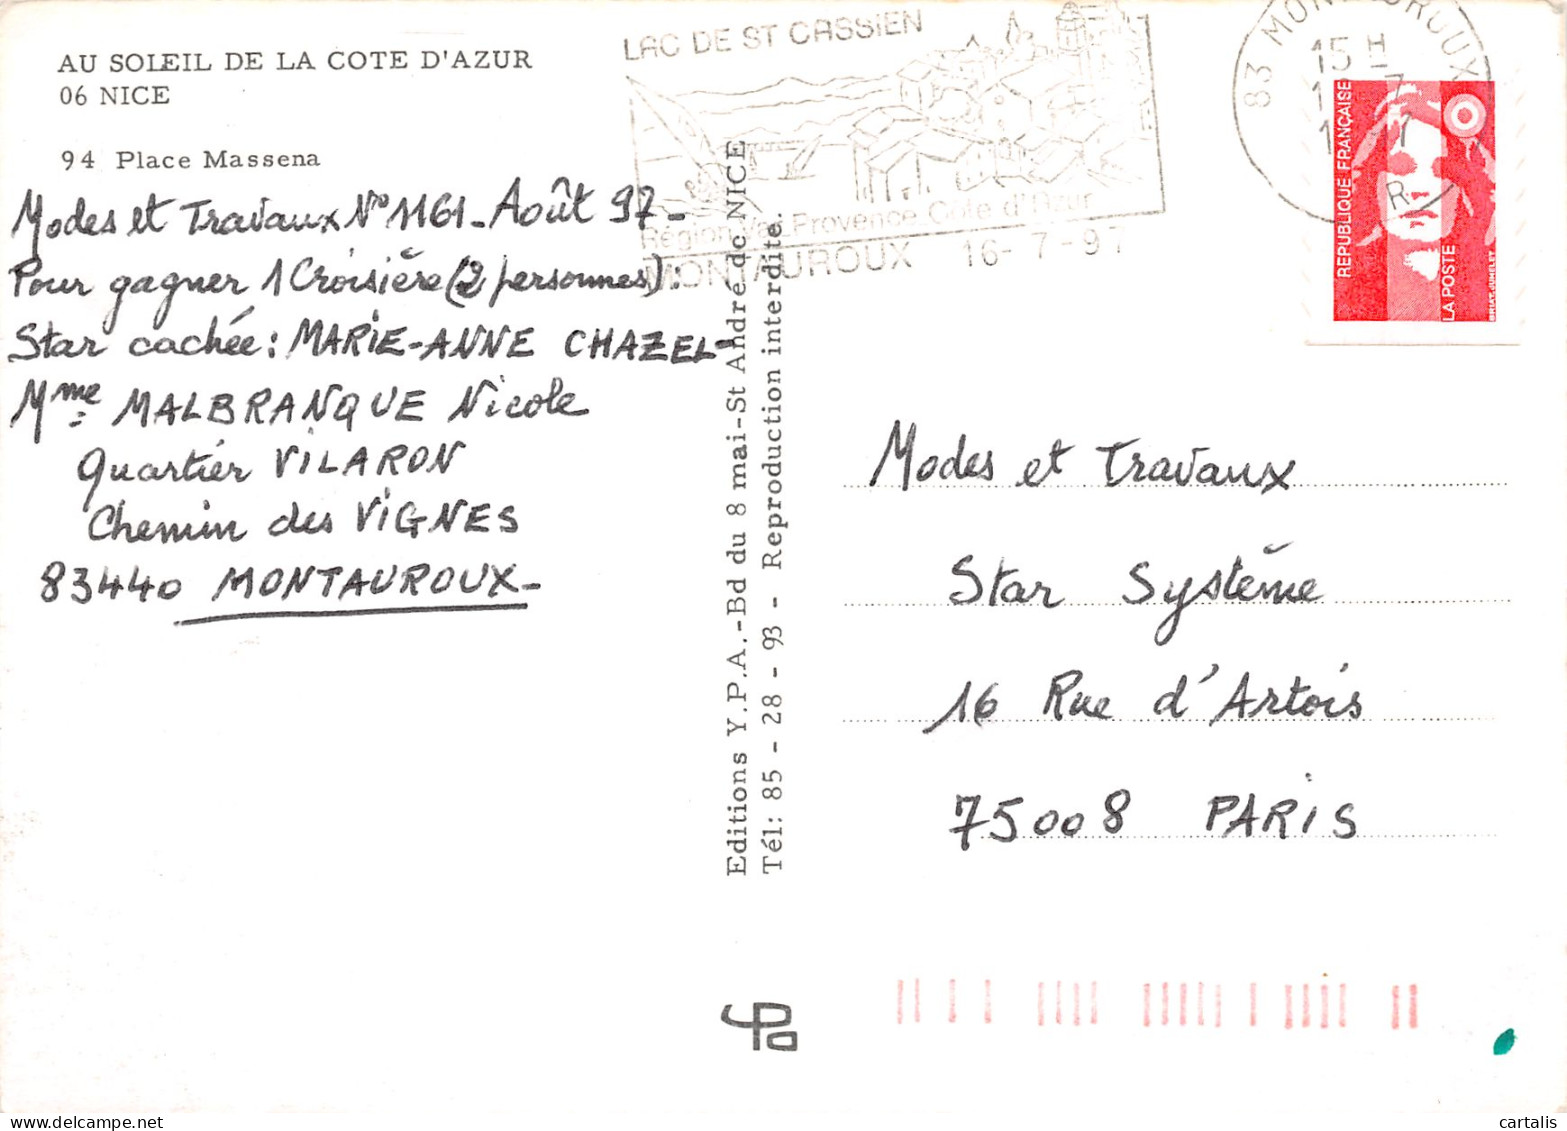 AU SOLEIL DE LA COTE D'AZUR
06 NICE
94 Place Massena
Modes et Travaux N° 1161 - Août 97 -
Pour gagner 1 Croisière (2 personnes) :
Star cachée : MARIE-ANNE CHAZEL -
Mme MALBRANQUE Nicole
Quartier VILARON
Chemin des VIGNES
83440 MONTAUROUX -
Editions Y.P.A.-Bd du 8 mai-St André.dc.NICE
Tél: 85 - 28 - 93 - Reproduction interdite.
LAC DE ST CASSIEN
Région Var Provence Côte d'Azur
MONTAUROUX 16-7-97
83 MONTAUROUX
15 H
REPUBLIQUE FRANÇAISE
LA POSTE
BRIAT-JUMELET
Modes et Travaux
Star Système
16 Rue d'Artois
75008 PARIS
cartalis